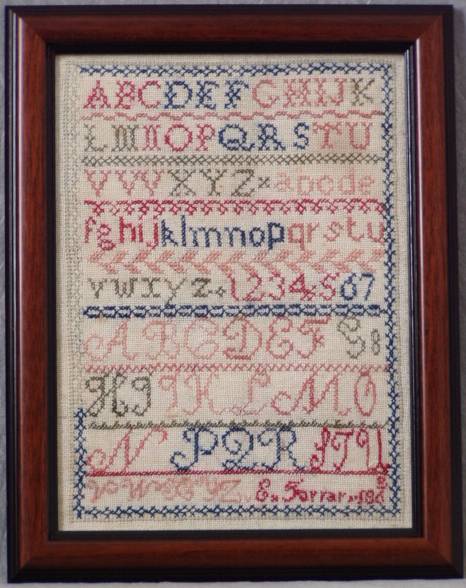 ABCDEFGHIJK
LMNOPQRSTU
VVVXYZ×abcde
fghijklmnopqrstu
vwxyz+1234567
ABCDEFG8
HIIKLMO
NPQRSTU
E× Farrar